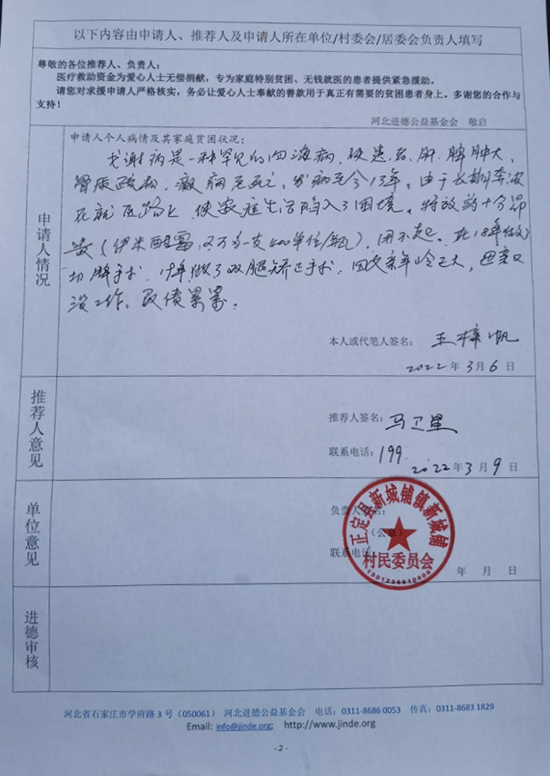 以下内容由申请人、推荐人及申请人所在单位/村委会/居委会负责人填写
尊敬的各位推荐人、负责人:
医疗救助资金为爱心人士无偿捐献,专为家庭特别贫困、无钱就医的患者提供紧急援助。
请您对求援申请人严格核实,务必让爱心人士奉献的善款用于真正有需要的贫困患者身上。多谢您的合作与
支持!
河北进德公益基金会 敬启
申请人情况
申请人个人病情及其家庭贫困状况:
戈谢病是一种罕见的 病, 患者, 肝 脾肿大,
骨质疏松, 癫痫 死亡, 发病至今13年。由于长期奔波
在就医路上, 使家庭生活陷入了困境。特效药十分昂
贵(伊米苷酶, 2万多一支400单位/瓶), 用不起。
切脾手术, 做了双腿矫正手术, 因父亲年龄已大, 母亲又
没工作, 负债累累。
本人或代笔人签名: 王梓帆
2022年3月6日
推荐人意见
推荐人签名: 马卫星
联系电话: 199
2022年3月9日
单位意见
负责人
(公章)
联系电话
年 月 日
正定县新城铺镇新城铺
村民委员会
进德审核
河北省石家庄市学府路3号(050061) 河北进德公益基金会 电话:0311-8686 0053 传真:0311-8683 1829
Email: info@jinde.org; http://www.jinde.org
- 2 -